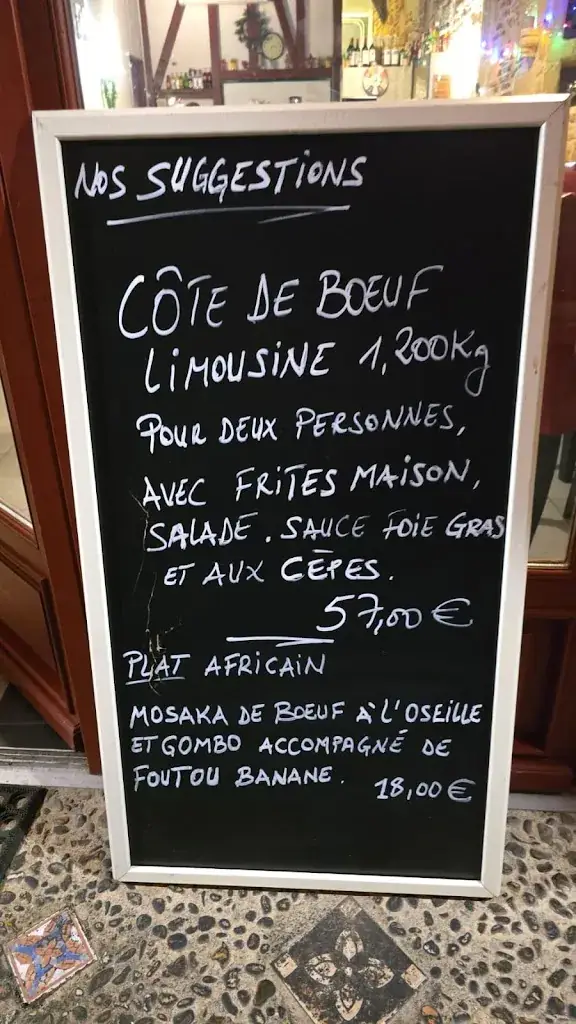 NOS SUGGESTIONS
CÔTE DE BOEUF
LIMOUSINE 1,200Kg
POUR DEUX PERSONNES,
AVEC FRITES MAISON,
SALADE. SAUCE FOIE GRAS
ET AUX CÈPES.
57,00 €
PLAT AFRICAIN
MOSAKA DE BOEUF À L'OSEILLE
ET GOMBO ACCOMPAGNÉ DE
FOUTOU BANANE.
18,00 €